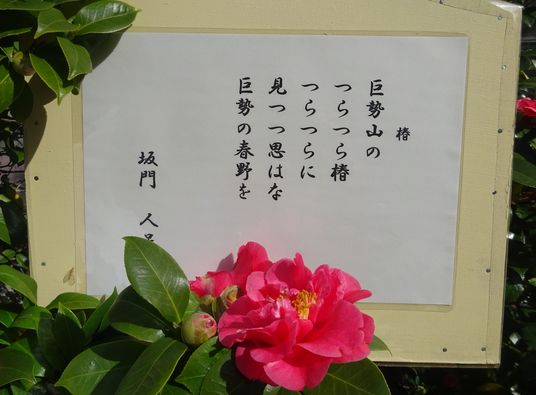 椿
巨勢山の
つらつら椿
つらつらに
見つつ思はな
巨勢の春野を
坂門 人